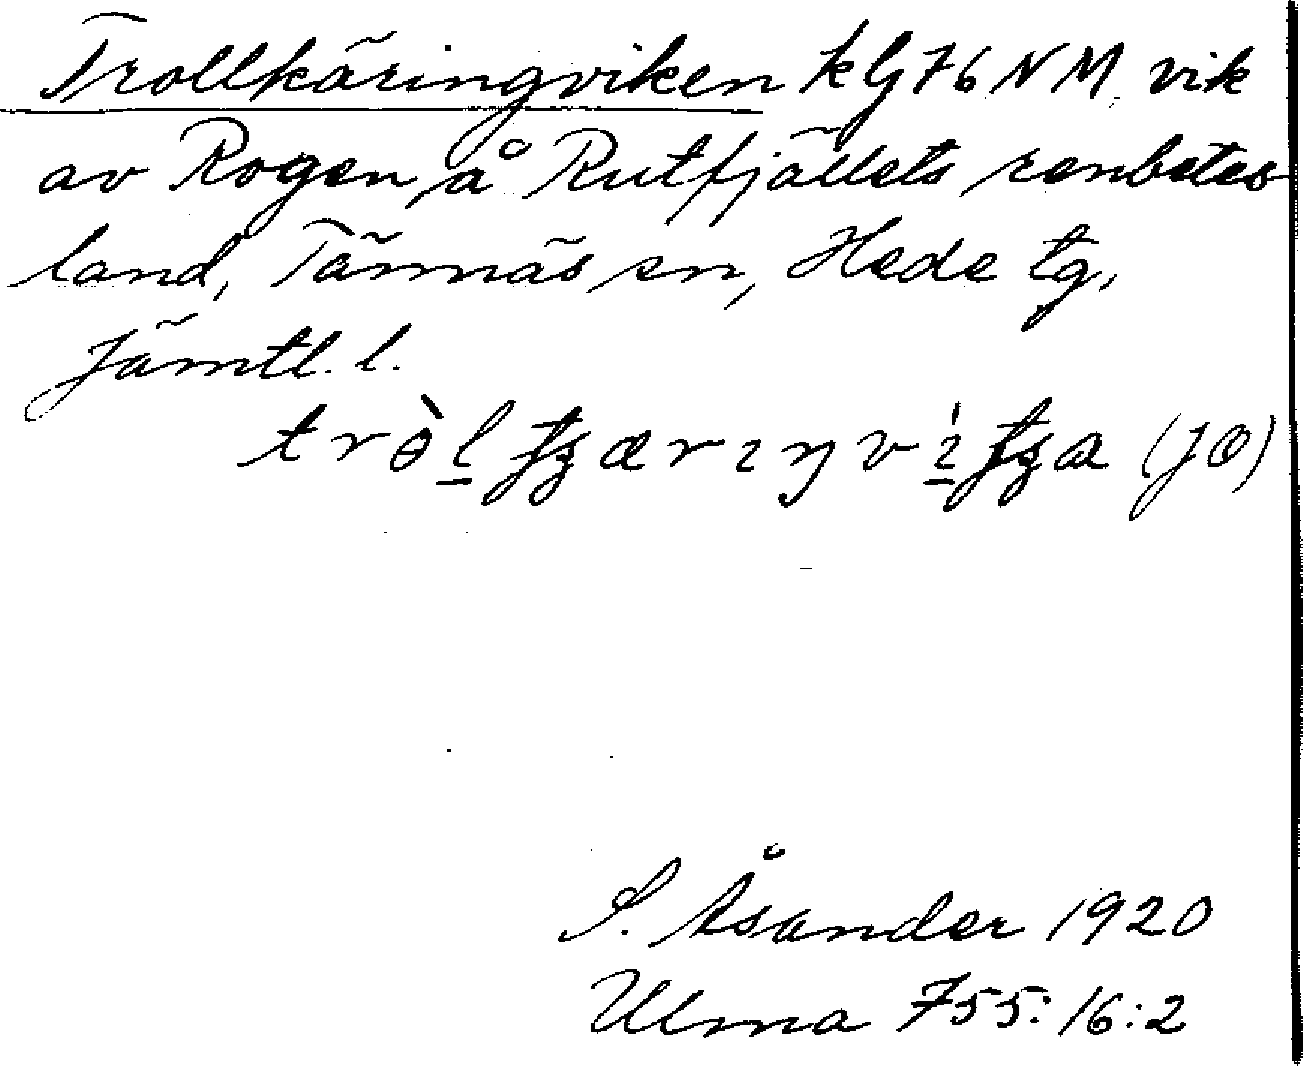 Trollkäringviken kG76NM vik
av Rogen, å Rutfjällets renbetes
land, Tännäs sn, Hede tg,
Jämtl. l.
(JO)
S. Åsander 1920
Ulma 755:16:2